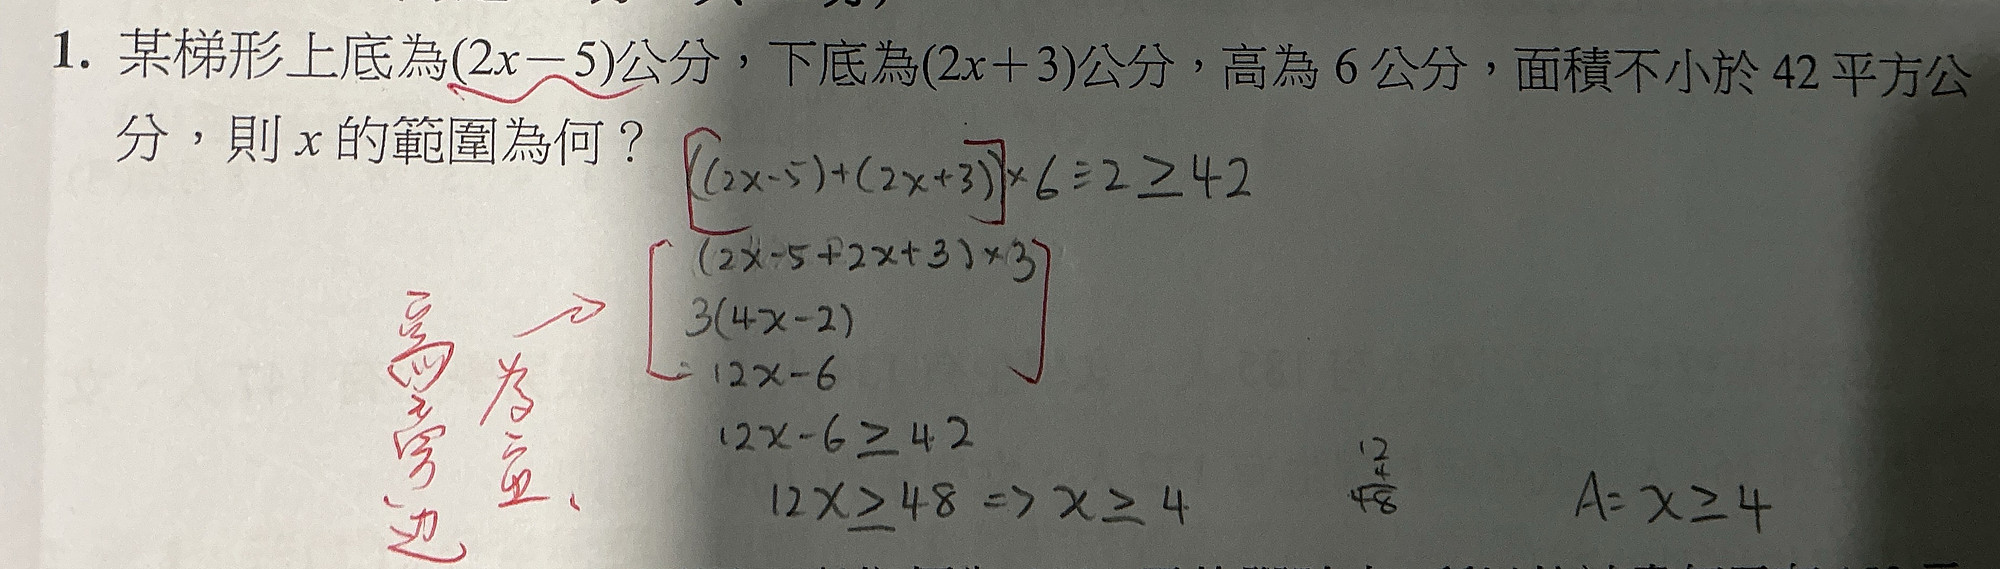 1. 某梯形上底為(2x－5)公分，下底為(2x＋3)公分，高為 6 公分，面積不小於 42 平方公
分，則 x 的範圍為何？
((2x-5)+(2x+3))×6÷2≥42
(2x-5+2x+3)×3
3(4x-2)
=12x-6
12x-6≥42
12x≥48 => x≥4
12
4
48
A= x≥4
寫在旁边
為宜、